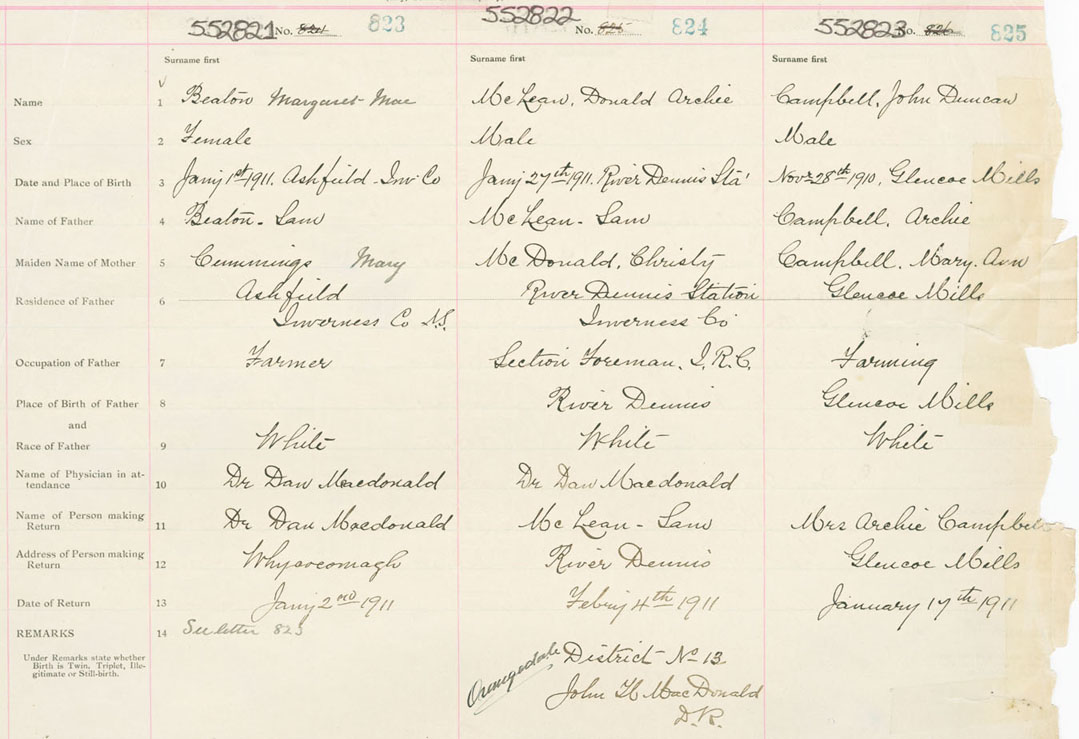 552821 No. 824 823 552822 No. 825 824 552823 No. 826 825
Surname first Surname first Surname first
Name 1 Beaton Margaret Mae McLean, Donald Archie Campbell, John Duncan
Sex 2 Female Male Male
Date and Place of Birth 3 Jany 1st 1911, Ashfield Inv Co Jany 27th 1911, River Dennis Sta' Novr 28th 1910, Glencoe Mills
Name of Father 4 Beaton - Sam McLean - Sam Campbell, Archie
Maiden Name of Mother 5 Cummings Mary McDonald, Christy Campbell, Mary Ann
Residence of Father 6 Ashfield River Dennis Station Glencoe Mills
Inverness Co N.S. Inverness Co
Occupation of Father 7 Farmer Section Foreman, I.R.C. Farming
Place of Birth of Father 8 River Dennis Glencoe Mills
and
Race of Father 9 White White White
Name of Physician in at-
tendance 10 Dr Dan Macdonald Dr Dan Macdonald
Name of Person making
Return 11 Dr Dan Macdonald McLean - Sam Mrs Archie Campbell
Address of Person making
Return 12 Whycocomagh River Dennis Glencoe Mills
Date of Return 13 Jany 2nd 1911 Febry 4th 1911 January 17th 1911
REMARKS 14 See letter 823
Under Remarks state whether
Birth is Twin, Triplet, Ille-
gitimate or Still-birth.
Orangedale District No 13
John H MacDonald
D.R.